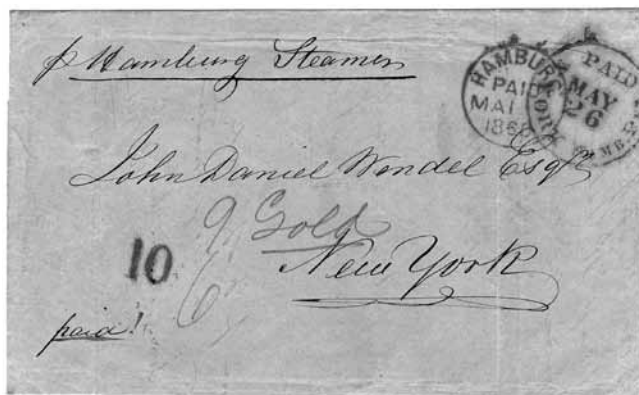 p Hamburg Steamer
HAMBURG
PAID
MAI
186
PAID
MAY
26
John Daniel Wendel Esqre
9 Gold
10
New York
paid!